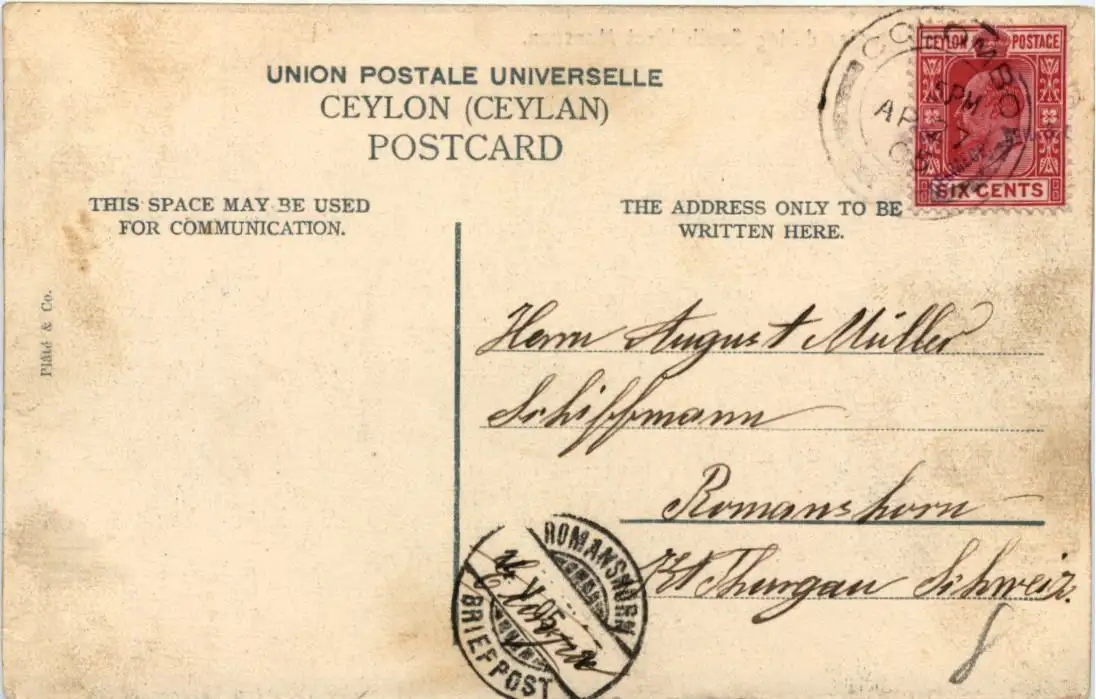 UNION POSTALE UNIVERSELLE
CEYLON (CEYLAN)
POSTCARD
THIS SPACE MAY BE USED
FOR COMMUNICATION.
THE ADDRESS ONLY TO BE
WRITTEN HERE.
CEYLON POSTAGE
SIX CENTS
COLOMBO
5PM
AP 7
Plâté & Co.
Herrn August Müller
Schiffmann
Romanshorn
Kt Thurgau Schweiz.
ROMANSHORN
BRIEFPOST